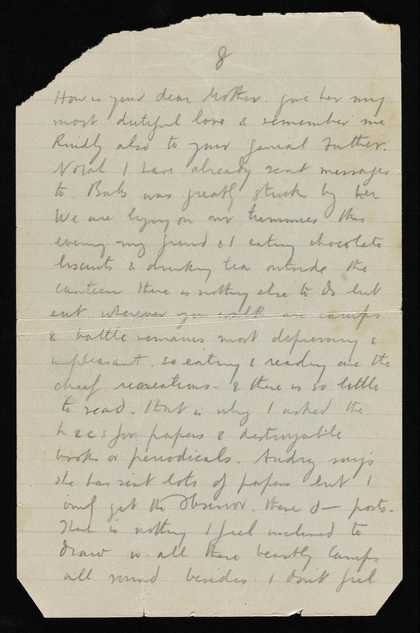 8
How is your dear Mother. give her my
most dutiful love & remember me
Kindly also to your genial Father.
I have already sent messages
to. Bab was greatly struck by her
We are lying on our tummies this
evening my friend & I eating chocolate
biscuits & drinking tea outside the
canteen there is nothing else to do but
eat wherever you walk are camps
& battle remains most depressing &
unpleasant. so eating & reading are the
chief recreations. & there is so little
to read. that is why I asked the
for papers & destroyable
books or periodicals. Audrey says
she has sent lots of papers but I
only get the Observer. these d— posts.
There is nothing I feel inclined to
draw in all these beastly camps
all round besides I don't feel